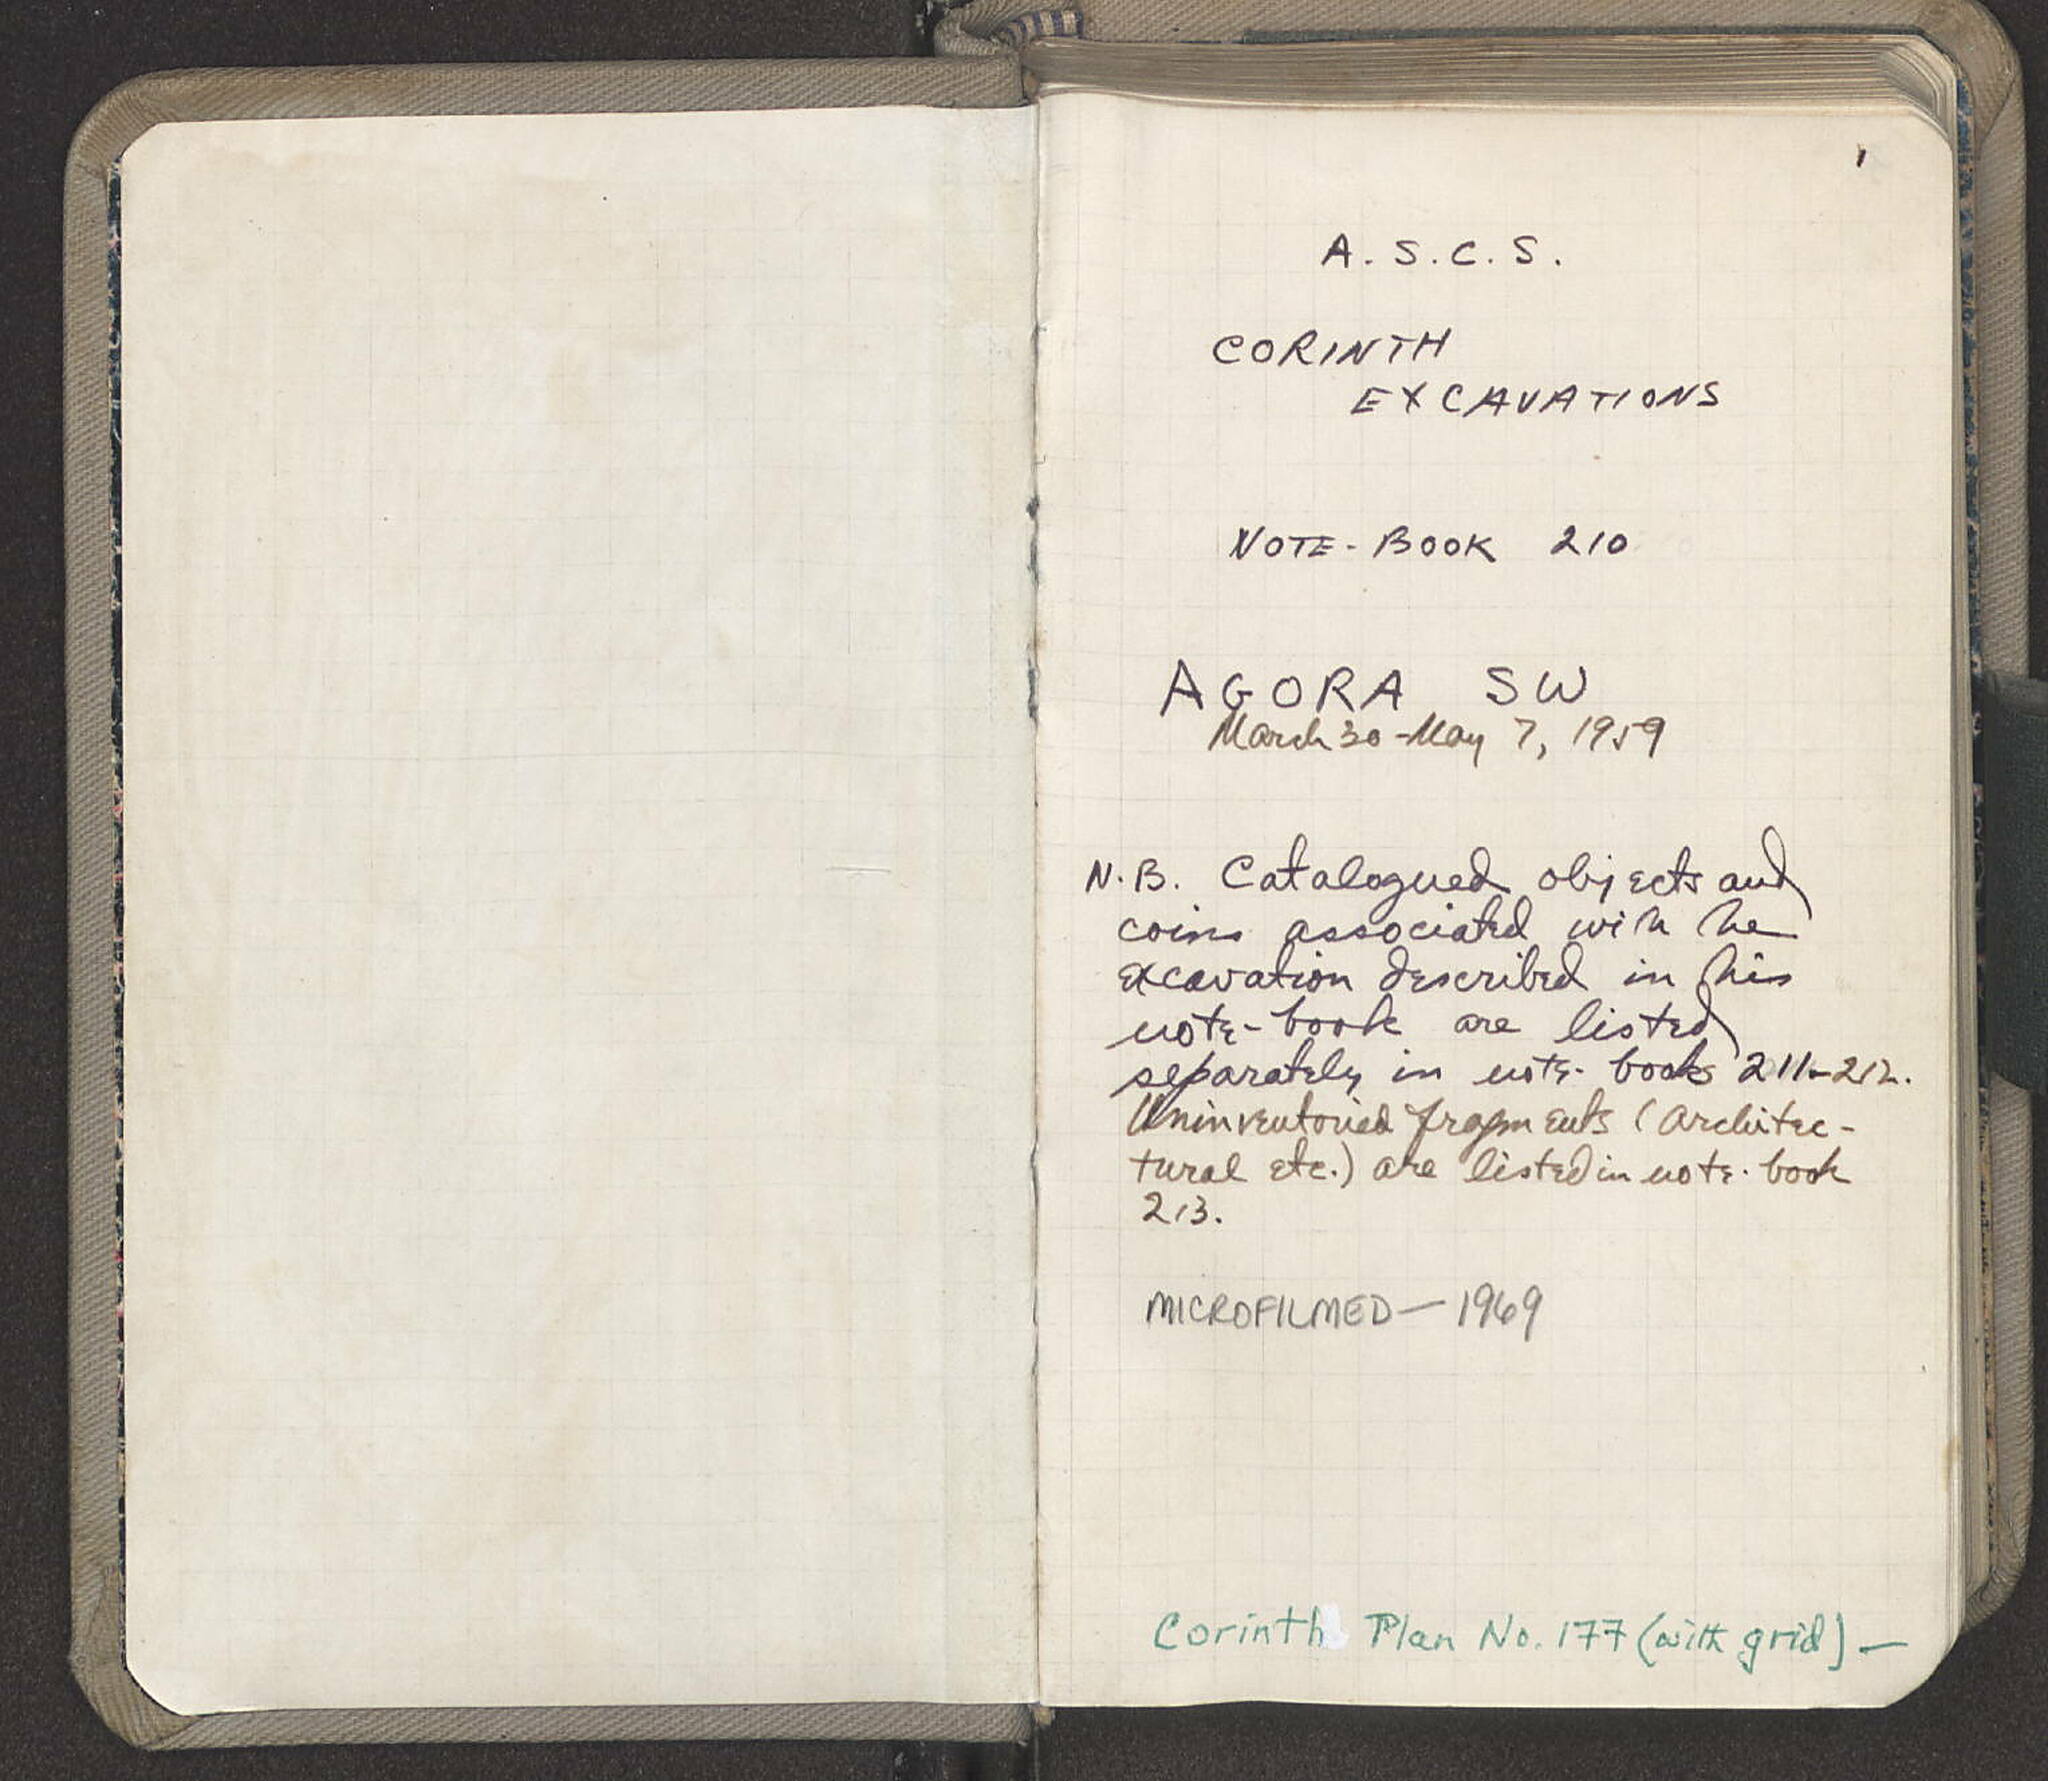 1
A. S. C. S.
CORINTH
EXCAVATIONS
NOTE-BOOK 210
AGORA SW
March 30 - May 7, 1959
N.B. Catalogued objects and
coins associated with the
excavation described in this
note-book are listed
separately in note-books 211-212.
Uninventoried fragments (architec-
tural etc.) are listed in note-book
213.
MICROFILMED — 1969
Corinth Plan No. 177 (with grid) —